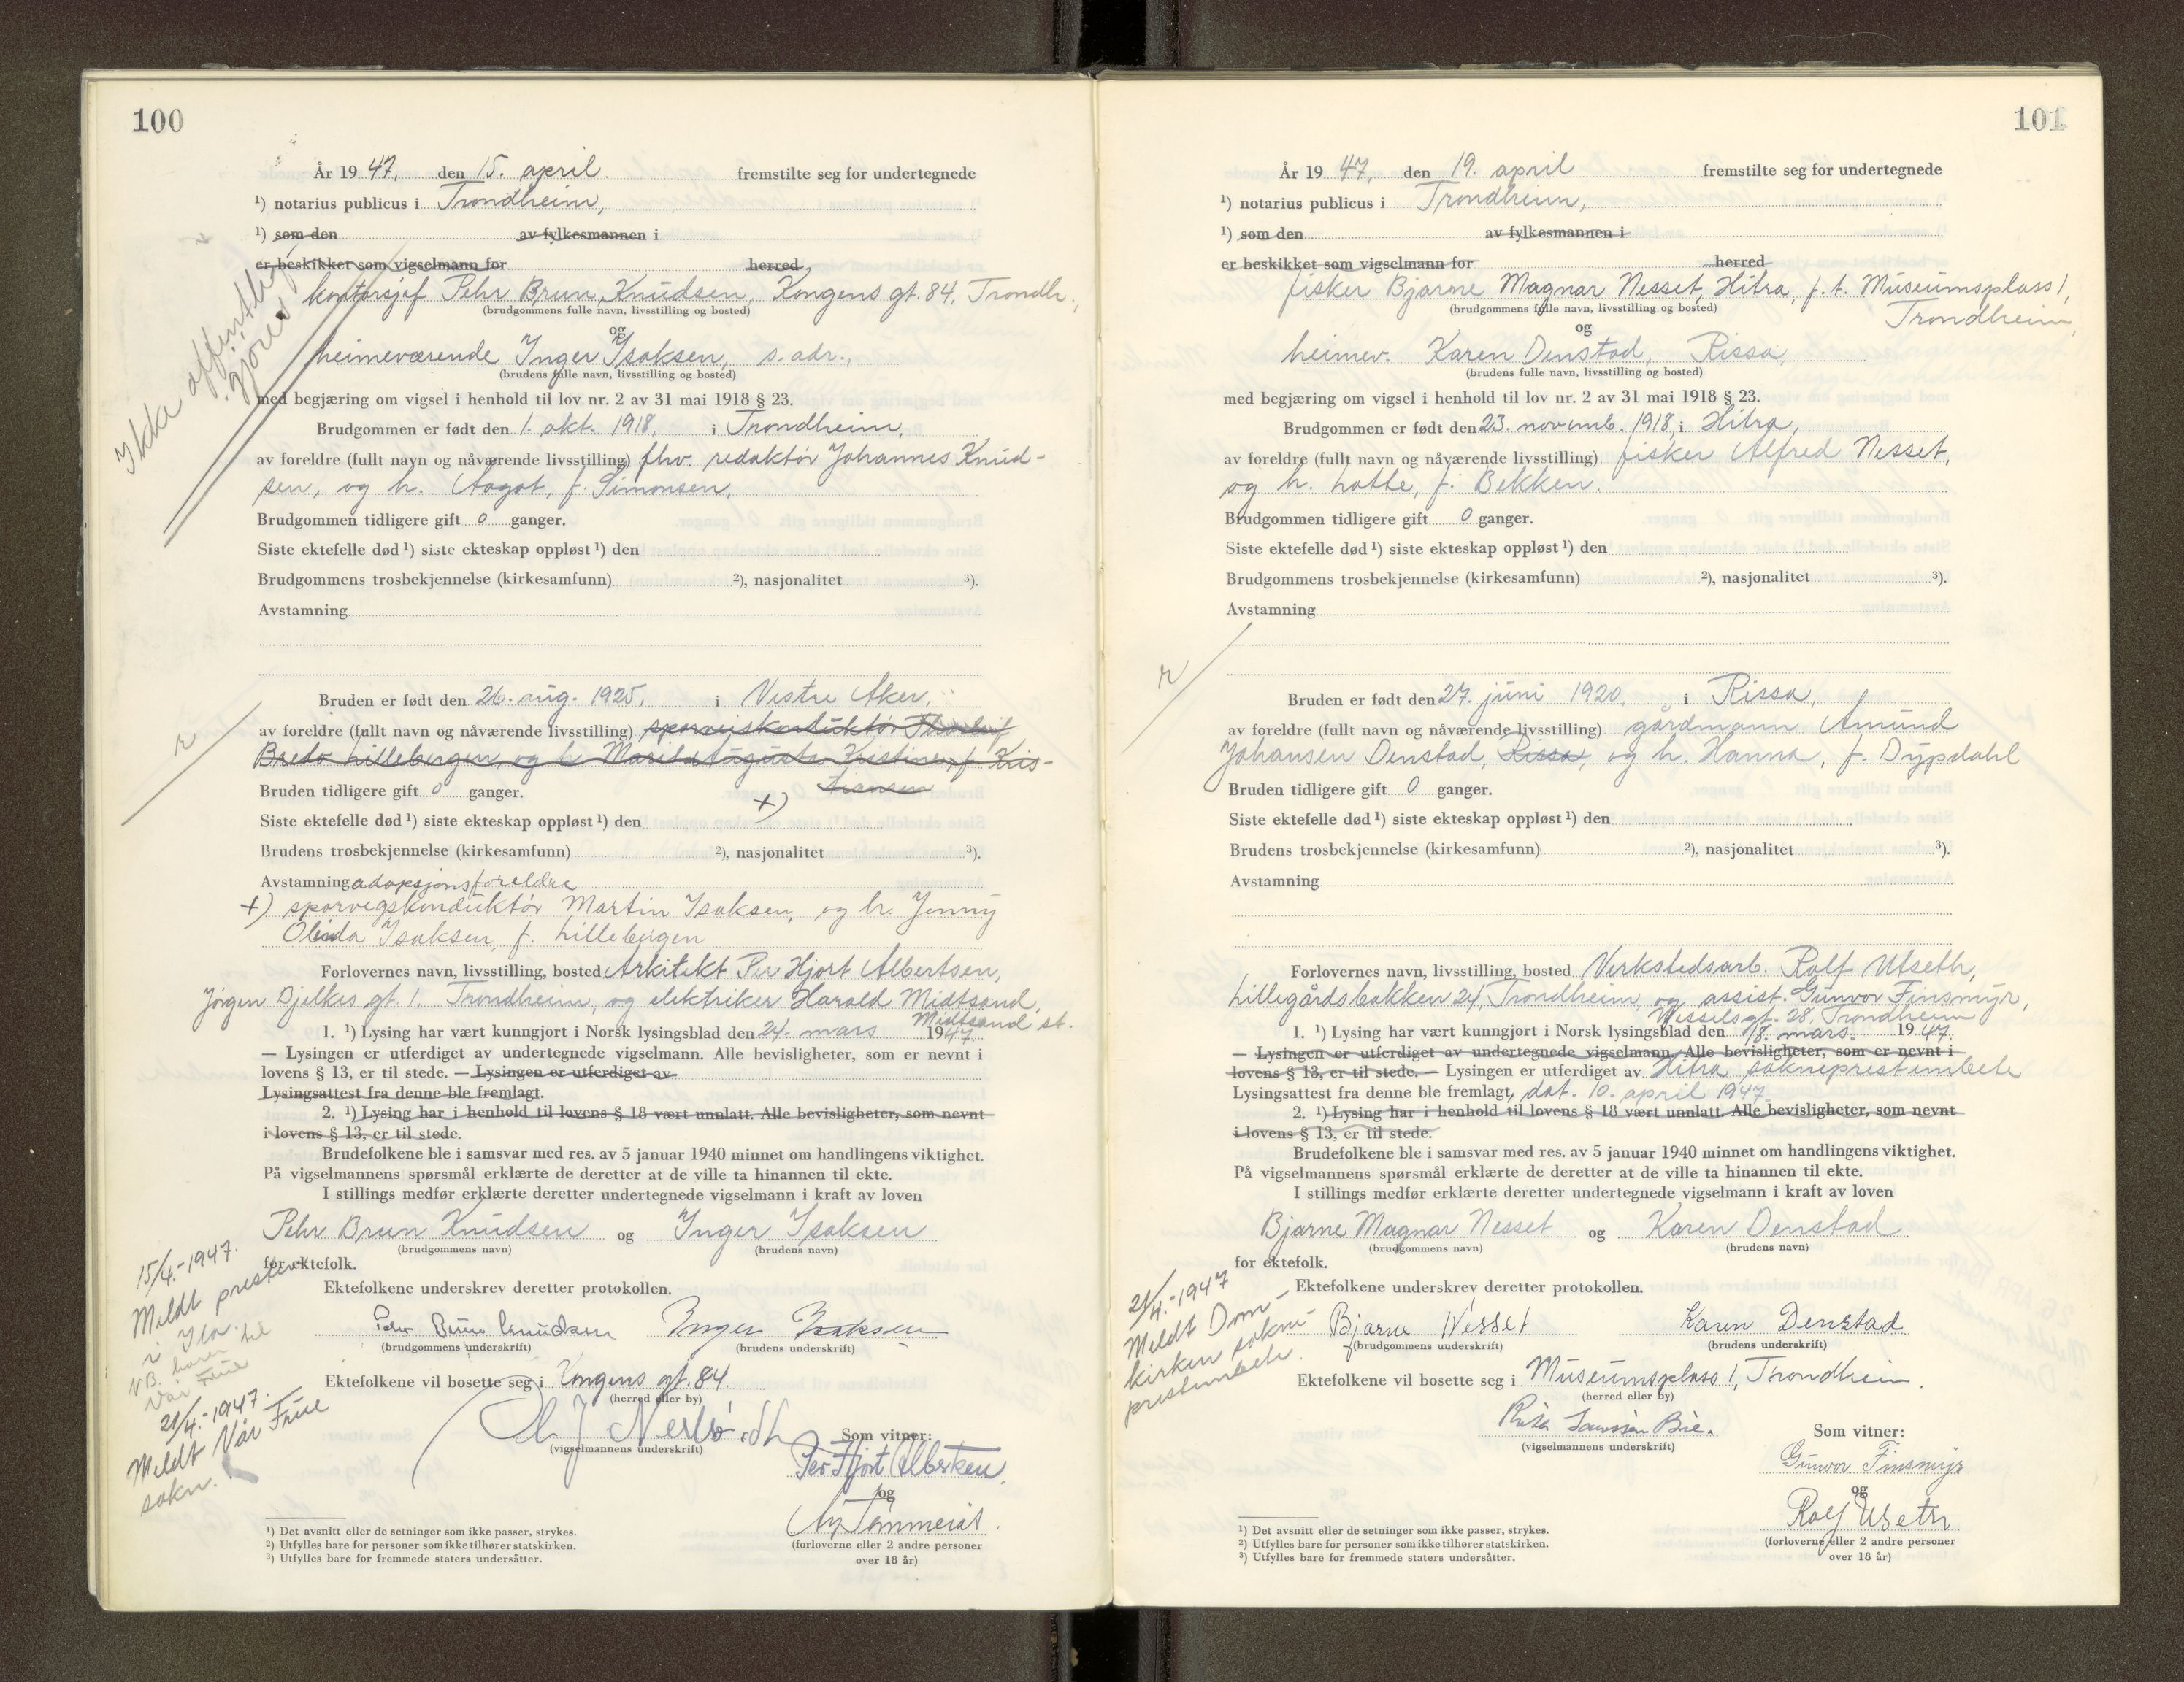 100
År 1947, den 15. april. fremstilte seg for undertegnede
¹) notarius publicus i Trondheim,
¹) som den av fylkesmannen i
er beskikket som vigselmann for herred
Ikke offentlig
gjøres
kontorsjef Pehr Brun Knudsen, Kongens gt. 84, Trondh.,
(brudgommens fulle navn, livsstilling og bosted)
og
heimeværende Inger Isaksen, s. adr.,
(brudens fulle navn, livsstilling og bosted)
med begjæring om vigsel i henhold til lov nr. 2 av 31 mai 1918 § 23.
Brudgommen er født den 1. okt. 1918, i Trondheim,
av foreldre (fullt navn og nåværende livsstilling) fhv. redaktør Johannes Knud-
sen, og h. Aagot, f. Simonsen,
Brudgommen tidligere gift 0 ganger.
Siste ektefelle død ¹) siste ekteskap oppløst ¹) den
Brudgommens trosbekjennelse (kirkesamfunn) ²), nasjonalitet ³).
Avstamning
r
Bruden er født den 26. aug. 1925, i Vestre Aker,
av foreldre (fullt navn og nåværende livsstilling) sporveiskonduktør Thorleif
Bredo Lillebergen, og h. Marith Augusta Kristine, f. Kris-
tiansen
Bruden tidligere gift 0 ganger. +)
Siste ektefelle død ¹) siste ekteskap oppløst ¹) den
Brudens trosbekjennelse (kirkesamfunn) ²), nasjonalitet ³).
Avstamning adopsjonsforeldre
+) sporvegskonduktør Martin Isaksen, og h. Jenny
Olinda Isaksen, f. Lillebergen
Forlovernes navn, livsstilling, bosted Arkitekt Per Hjort Albertsen,
Jørgen Bjelkes gt. 1. Trondheim, og elektriker Harald Midtsand,
Midtsand st.
1. ¹) Lysing har vært kunngjort i Norsk lysingsblad den 24. mars 1947.
— Lysingen er utferdiget av undertegnede vigselmann. Alle bevisligheter, som er nevnt i
lovens § 13, er til stede. — Lysingen er utferdiget av
Lysingsattest fra denne ble fremlagt.
2. ¹) Lysing har i henhold til lovens § 18 vært unnlatt. Alle bevisligheter, som nevnt
i lovens § 13, er til stede.
Brudefolkene ble i samsvar med res. av 5 januar 1940 minnet om handlingens viktighet.
På vigselmannens spørsmål erklærte de deretter at de ville ta hinannen til ekte.
I stillings medfør erklærte deretter undertegnede vigselmann i kraft av loven
Pehr Brun Knudsen og Inger Isaksen
(brudgommens navn) (brudens navn)
for ektefolk.
Ektefolkene underskrev deretter protokollen.
Pehr Brun Knudsen Inger Isaksen
(brudgommens underskrift) (brudens underskrift)
Ektefolkene vil bosette seg i Kongens gt. 84.
(herred eller by)
(vigselmannens underskrift)
Som vitner:
Per Hjort Albertsen
og
(forloverne eller 2 andre personer
over 18 år)
15/4.-1947.
Meldt presten
i Ila.
NB. hører til
Vår Frue
21/4.-1947.
Meldt Vår Frue
sokn.
¹) Det avsnitt eller de setninger som ikke passer, strykes.
²) Utfylles bare for personer som ikke tilhører statskirken.
³) Utfylles bare for fremmede staters undersåtter.
101
År 1947, den 19. april fremstilte seg for undertegnede
¹) notarius publicus i Trondheim,
¹) som den av fylkesmannen i
er beskikket som vigselmann for herred
fisker Bjarne Magnar Nesset, Hitra, f. t. Museumsplass 1,
Trondheim,
(brudgommens fulle navn, livsstilling og bosted)
og
heimev. Karen Denstad, Rissa,
(brudens fulle navn, livsstilling og bosted)
med begjæring om vigsel i henhold til lov nr. 2 av 31 mai 1918 § 23.
Brudgommen er født den 23. novemb. 1918, i Hitra,
av foreldre (fullt navn og nåværende livsstilling) fisker Alfred Nesset,
og h. Lotte, f. Bekken.
Brudgommen tidligere gift 0 ganger.
Siste ektefelle død ¹) siste ekteskap oppløst ¹) den
Brudgommens trosbekjennelse (kirkesamfunn) ²), nasjonalitet ³).
Avstamning
r
Bruden er født den 27. juni 1920, i Rissa,
av foreldre (fullt navn og nåværende livsstilling) gårdmann Amund
Johansen Denstad, Rissa, og h. Hanna, f. Dypdahl
Bruden tidligere gift 0 ganger.
Siste ektefelle død ¹) siste ekteskap oppløst ¹) den
Brudens trosbekjennelse (kirkesamfunn) ²), nasjonalitet ³).
Avstamning
Forlovernes navn, livsstilling, bosted Verkstedsarb. Rolf Utseth,
Lillegårdsbakken 24, Trondheim, og assist. Gunvor Finsmyr,
Wesselsgt. 28, Trondheim
1. ¹) Lysing har vært kunngjort i Norsk lysingsblad den 18. mars 1947.
— Lysingen er utferdiget av undertegnede vigselmann. Alle bevisligheter, som er nevnt i
lovens § 13, er til stede. — Lysingen er utferdiget av Hitra sokneprestembete
Lysingsattest fra denne ble fremlagt, dat. 10. april 1947.
2. ¹) Lysing har i henhold til lovens § 18 vært unnlatt. Alle bevisligheter, som nevnt
i lovens § 13, er til stede.
Brudefolkene ble i samsvar med res. av 5 januar 1940 minnet om handlingens viktighet.
På vigselmannens spørsmål erklærte de deretter at de ville ta hinannen til ekte.
I stillings medfør erklærte deretter undertegnede vigselmann i kraft av loven
Bjarne Magnar Nesset og Karen Denstad
(brudgommens navn) (brudens navn)
for ektefolk.
Ektefolkene underskrev deretter protokollen.
Bjarne Nesset Karen Denstad
(brudgommens underskrift) (brudens underskrift)
Ektefolkene vil bosette seg i Museumsplass 1, Trondheim.
(herred eller by)
(vigselmannens underskrift)
Som vitner:
Gunvor Finsmyr
og
Rolf Utseth
(forloverne eller 2 andre personer
over 18 år)
21/4.-1947
Meldt Dom-
kirken sokne-
prestembete.
¹) Det avsnitt eller de setninger som ikke passer, strykes.
²) Utfylles bare for personer som ikke tilhører statskirken.
³) Utfylles bare for fremmede staters undersåtter.